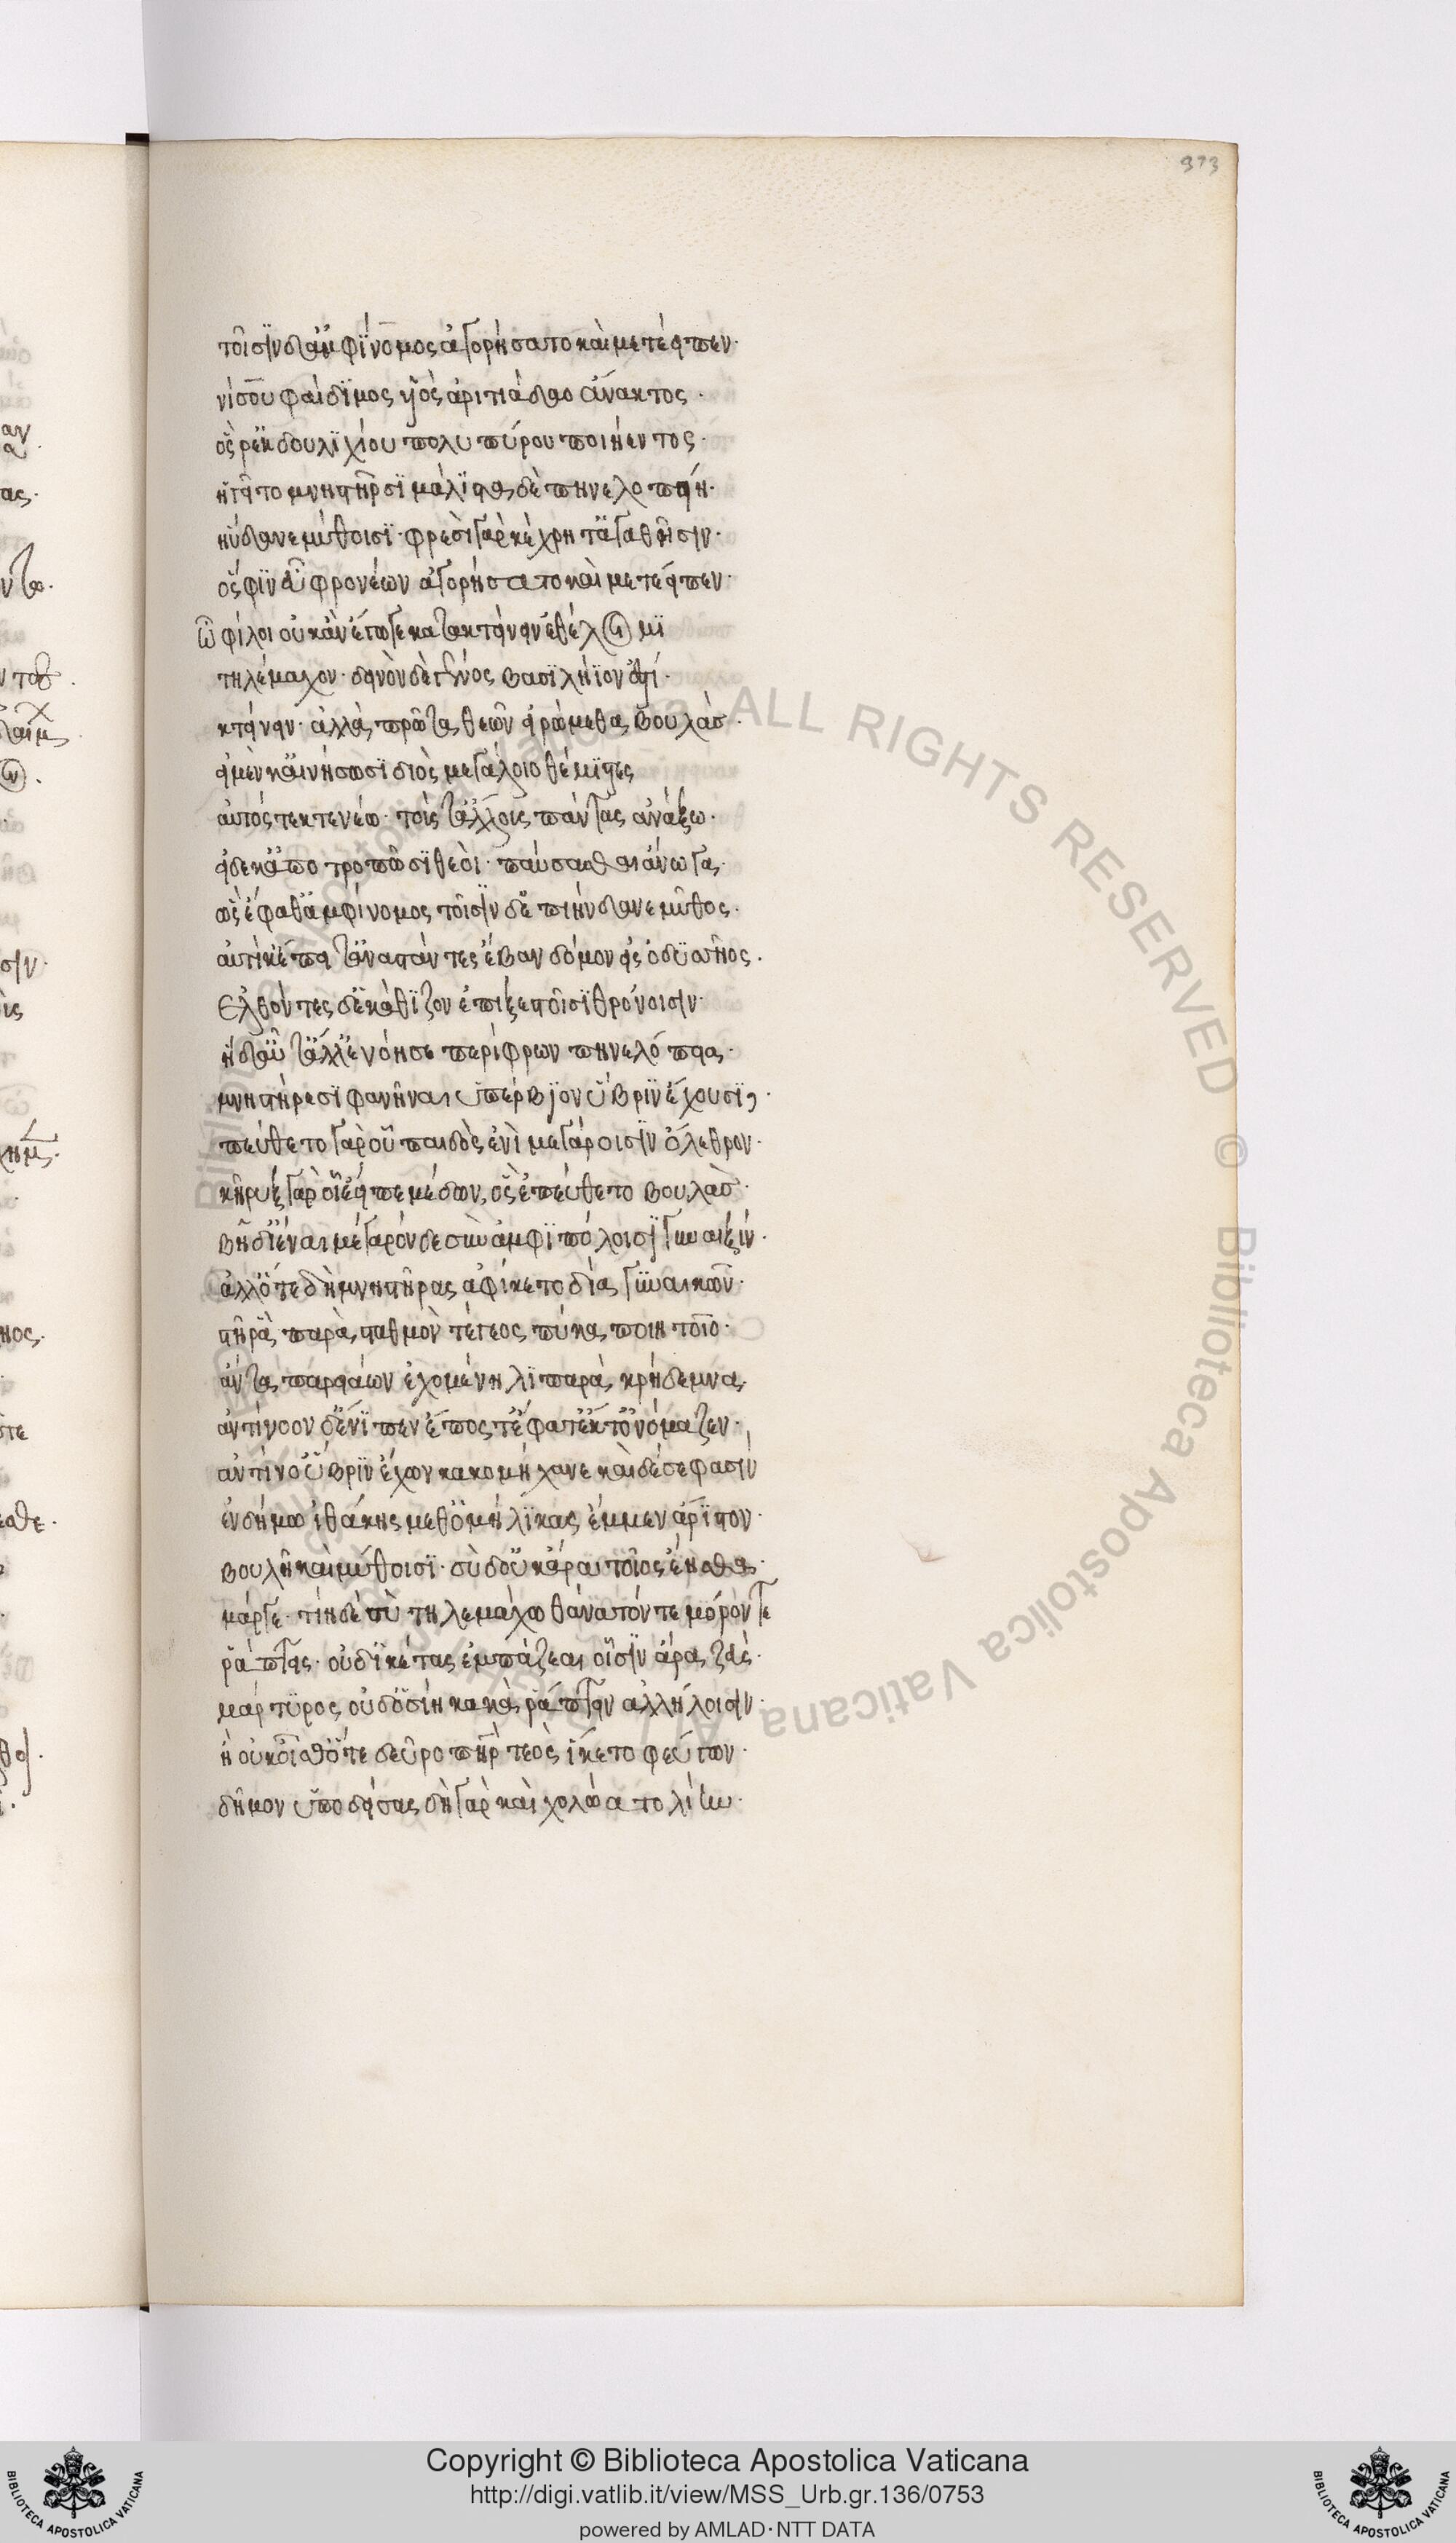 373
τοῖσιν δ' ἀμφίνομος ἀγορήσατο καὶ μετέειπεν·
νίσου φαίδιμος υἱὸς ἀρητιάδαο ἄνακτος·
ὅς ῥ' ἐκ δουλιχίου πολυπύρου ποιήεντος·
ἡγεῖτο μνηστῆρσι μάλιστα δὲ πηνελοπείη·
ἥνδανε μύθοισι· φρεσὶ γὰρ κέχρητ' ἀγαθῆισιν·
ὅ σφιν ἐϋφρονέων ἀγορήσατο καὶ μετέειπεν·
ὦ φίλοι οὐκ ἂν ἔγωγε κατακτείνειν ἐθέλοιμι
τηλέμαχον· δεινὸν δὲ γένος βασιλήϊον ἐστί·
κτείνειν· ἀλλὰ πρῶτα θεῶν εἰρώμεθα βουλάς·
εἰ μέν κ' αἰνήσωσι διὸς μεγάλοιο θέμιστες
αὐτός τε κτενέω· τούς τ' ἄλλους πάντας ἀνώξω·
εἰ δέ κ' ἀποτροπῶσι θεοί· παύσασθαι ἄνωγα·
ὣς ἔφατ' ἀμφίνομος τοῖσιν δ' ἐπιήνδανε μῦθος·
αὐτίκ' ἔπειτ' ἀνστάντες ἔβαν δόμον εἰς ὀδυσῆος·
ἐλθόντες δὲ κάθιζον ἐπὶ ξεστοῖσι θρόνοισιν·
ἡ δ' αὖτ' ἄλλ' ἐνόησε περίφρων πηνελόπεια·
μνηστήρεσι φανῆναι ὑπέρβιον ὕβριν ἔχουσι·
πεύθετο γὰρ οὗ παιδὸς ἐνὶ μεγάροισιν ὄλεθρον·
κῆρυξ γάρ οἱ ἔειπε μέδων, ὃς ἐπεύθετο βουλάς·
βῆ δ' ἰέναι μέγαρόνδε σὺν ἀμφιπόλοισι γυναιξίν·
ἀλλ' ὅτε δὴ μνηστῆρας ἀφίκετο δῖα γυναικῶν·
στῆ ῥα παρὰ σταθμὸν τέγεος πύκα ποιητοῖο·
ἄντα παρειάων σχομένη λιπαρὰ κρήδεμνα·
ἀντίνοον δ' ἐνίπεν ἔπος τ' ἔφατ' ἔκ τ' ὀνόμαζεν·
ἀντίνο' ὕβριν ἔχων κακομήχανε καὶ δέ σε φασὶν
ἐν δήμω ἰθάκης μεθ' ὁμήλικας ἔμμεν ἄριστον·
βουλῆ καὶ μύθοισι· σὺ δ' οὐκ ἄρα τοῖος ἔησθα·
μάργε· τίη δὲ σὺ τηλεμάχω θάνατόν τε μόρον τε
ῥάπτεις· οὐδ' ἱκέτας ἐμπάζεαι οἷσιν ἄρα ζεὺς·
μάρτυρος οὐδ' ὁσίη κακὰ ῥάπτειν ἀλλήλοισιν·
ἦ οὐκ οἶσθ' ὅτε δεῦρο πατὴρ τεὸς ἵκετο φεύγων·
δῆμον ὑποδείσας δὴ γὰρ κεχολώατο λίην·
Copyright © Biblioteca Apostolica Vaticana
http://digi.vatlib.it/view/MSS_Urb.gr.136/0753
powered by AMLAD·NTT DATA